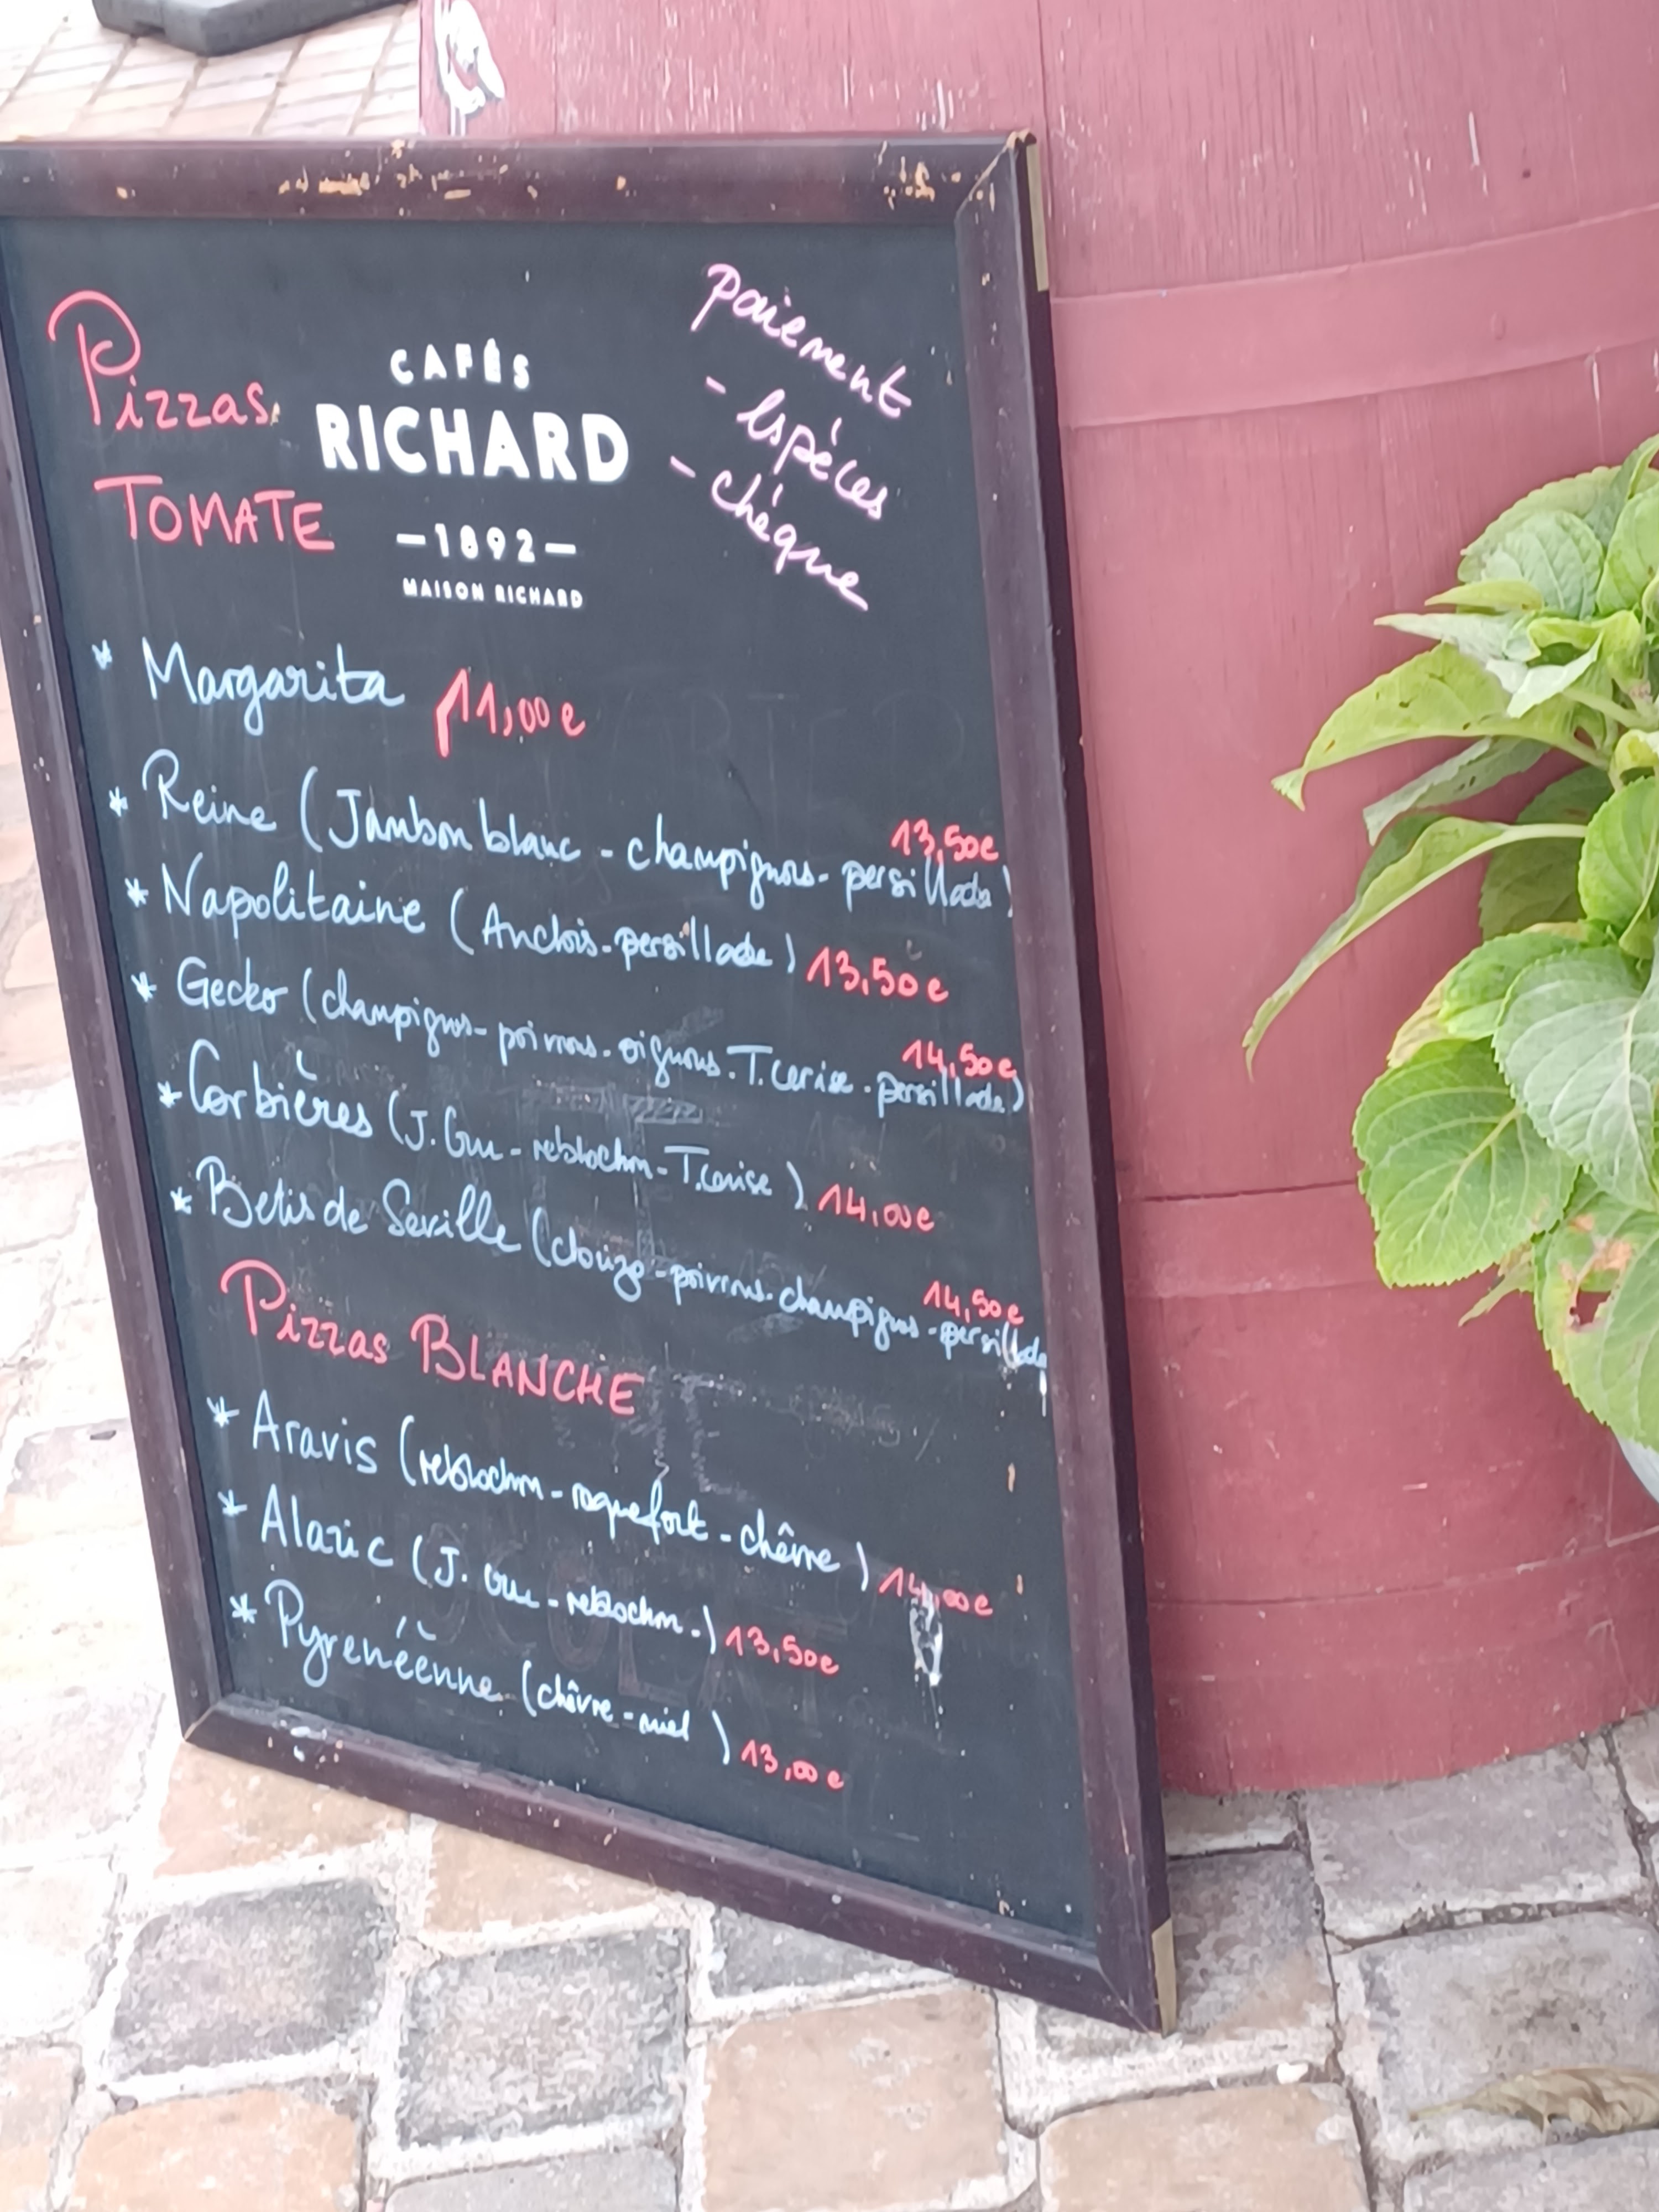 Pizzas
TOMATE
CAFÉS
RICHARD
—1892—
MAISON RICHARD
paiement
- Espèces
- chèque
* Margarita 11,00€
* Reine (Jambon blanc - champignons - persillade) 13,50€
* Napolitaine (Anchois - persillade) 13,50€
* Gecko (champignons - poivrons - oignons - T. cerise - persillade) 14,50€
* Corbières (J. Cru - reblochon - T. cerise) 14,00€
* Betis de Seville (chorizo - poivrons - champignons - persillade 14,50€
Pizzas BLANCHE
* Aravis (reblochon - roquefort - chèvre) 14,00€
* Alaric (J. cru - reblochon -) 13,50€
* Pyrenéenne (chèvre - miel) 13,00€